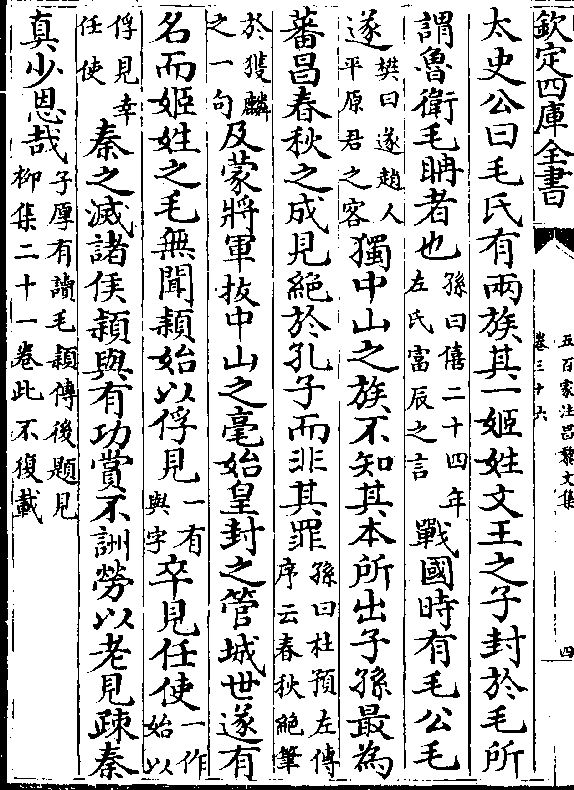 欽定四庫全書
五百家注昌黎文集
卷三十六
四
太史公曰毛氏有兩族其一姬姓文王之子封於毛所
謂魯衛毛聃者也孫曰僖二十四年左氏富辰之言戰國時有毛公毛
遂樊曰遂趙人平原君之客獨中山之族不知其本所出子孫最為
蕃昌春秋之成見絕於孔子而非其罪孫曰杜預左傳序云春秋絕筆
於獲麟之一句及蒙將軍拔中山之毫始皇封之管城世遂有
名而姬姓之毛無聞穎始以俘見一有與字卒見任使一作始以
俘見幸任使秦之滅諸侯穎與有功賞不詶勞以老見疎秦
真少恩哉子厚有讀毛穎傳後題見柳集二十一卷此不復載